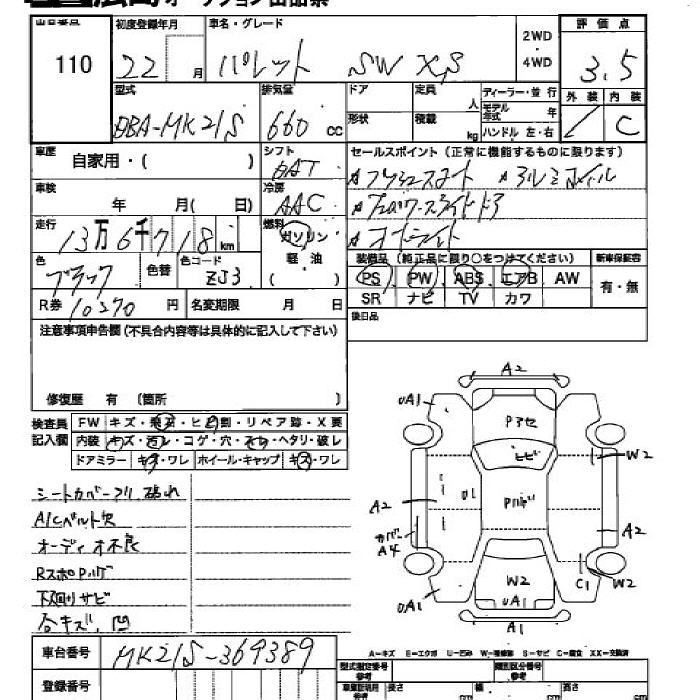 出品番号 初度登録年月 車名・グレード 2WD ・ 4WD 評価点
110 22 月 パレット SW XS 3.5
型式 排気量 ドア 定員 人 ディーラー・並行 外装 内装
DBA-MK21S 660 cc 形状 積載 kg モデル年式 年 ハンドル 左・右 C
車歴 自家用・( ) シフト セールスポイント(正常に機能するものに限ります)
車検 年 月( 日) 冷房 AAC
走行 13万6千718km 燃料 ガソリン 軽油
オートライト
色 ブラック 色替 色コード ZJ3
装備品(純正品に限り○をつけてください) 新車保証書
PS PW ABS エアB AW 有・無
SR ナビ TV カワ
R券 10270 円 名変期限 月 日
後日品
注意事項申告欄(不具合内容等は具体的に記入して下さい)
修復歴 有 (箇所 )
検査員記入欄 FW キズ・飛石・ヒビ割・リペア跡・X要
内装 キズ・汚レ・コゲ・穴・スレ・ヘタリ・破レ
ドアミラー キズ・ワレ ホイール・キャップ キズ・ワレ
シートカバー 破れ
A/Cベルト欠
オーディオ不良
下廻りサビ
合キズ、凹
A2
UA1
Pアセ
ヒビ
W2
A2
U1
Pハゲ
A2
カバーA4
W2
UA1
C1
W2
UA1
A1
車台番号 MK21S-369389
A-キズ E-エクボ U-凹み W-補修跡 S-サビ C-腐食 XX-交換済
登録番号
型式指定番号 参考 類別区分番号 参考
長さ 幅 高さ